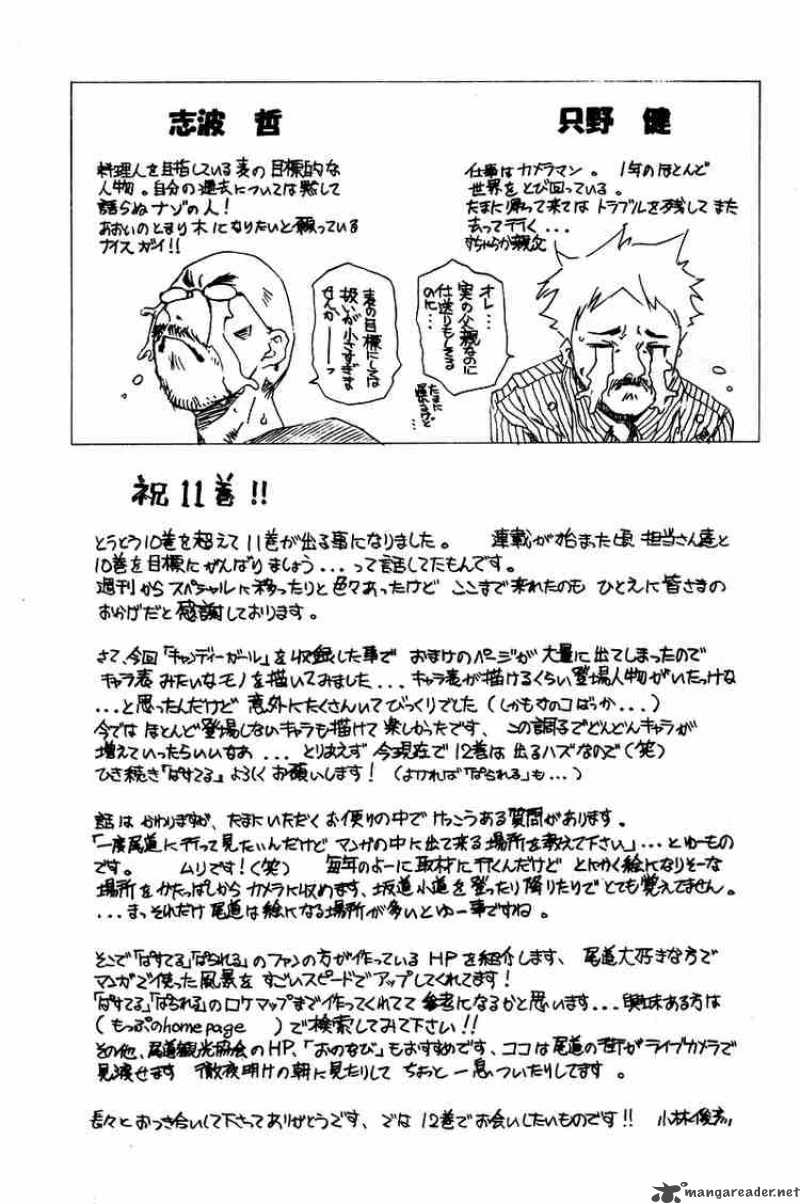 志波 哲
料理人を目指している麦の目標的な
人物。自分の過去については黙して
語らぬナゾの人！
あおいのとまり木になりたいと願っている
ナイスガイ！！
麦の目標にしては
扱いが小さすぎま
せんかーーっ
只野 健
仕事はカメラマン。 1年のほとんど
世界をとび回っている。
たまに帰って来てはトラブルを残してまた
去って行く...
ちゃらんぽらん親父
オレ...
実の父親なのに
仕送りもしてるのに...
たまに
遅れるけど
...
祝11巻!!
とうとう10巻を超えて11巻が出る事になりました。 連載が始まった頃 担当さん達と
10巻を目標にがんばりましょう...って話してたもんです。
週刊からスペシャルに移ったりと色々あったけど ここまで来れたのも ひとえに皆さまの
おかげだと感謝しております。
さて、今回「キャンディーガール」を収録した事で おまけのページが大量に出てしまったので
キャラ表みたいなモノを描いてみました... キャラ表が描けるくらい登場人物がいたっけな
...と思ったんだけど意外にたくさんいてびっくりでした(しかも女のコばっか...)
今ではほとんど登場しないキャラも描けて楽しかったです、この調子でどんどんキャラが
増えていったらいいなあ... とりあえず今現在で12巻は出るハズなので(笑)
ひき続き「ぱすてる」よろしくお願いします! (よければ「ぱられる」も...)
話はかわりますが、たまにいただくお便りの中でけっこうある質問があります。
「一度尾道に行って見たいんだけどマンガの中に出て来る場所を教えて下さい」...とゆーもの
です。 ムリです!(笑) 毎年のよーに取材に行くんだけど とにかく絵になりそーな
場所をかたっぱしからカメラに収めます、坂道小道を登ったり降りたりでとても覚えてません。
...まっそれだけ尾道は絵になる場所が多いとゆー事ですね。
そこで「ぱすてる」「ぱられる」のファンの方が作っているHPを紹介します、尾道大好きな方で
マンガで使った風景をすごいスピードでアップしてくれてます!
「ぱすてる」「ぱられる」のロケマップまで作ってくれてて参考になるかと思います...興味ある方は
(もっぷのhomepage )で検索してみて下さい!!
その他、尾道観光協会のHP、「おのなび」もおすすめです、ココは尾道の街がライブカメラで
見渡せます 徹夜明けの朝に見たりして ちょっと一息ついたりしてます。
長々とおつき合いして下さってありがとうです、では12巻でお会いしたいものです!! 小林俊彦
mangareader.net